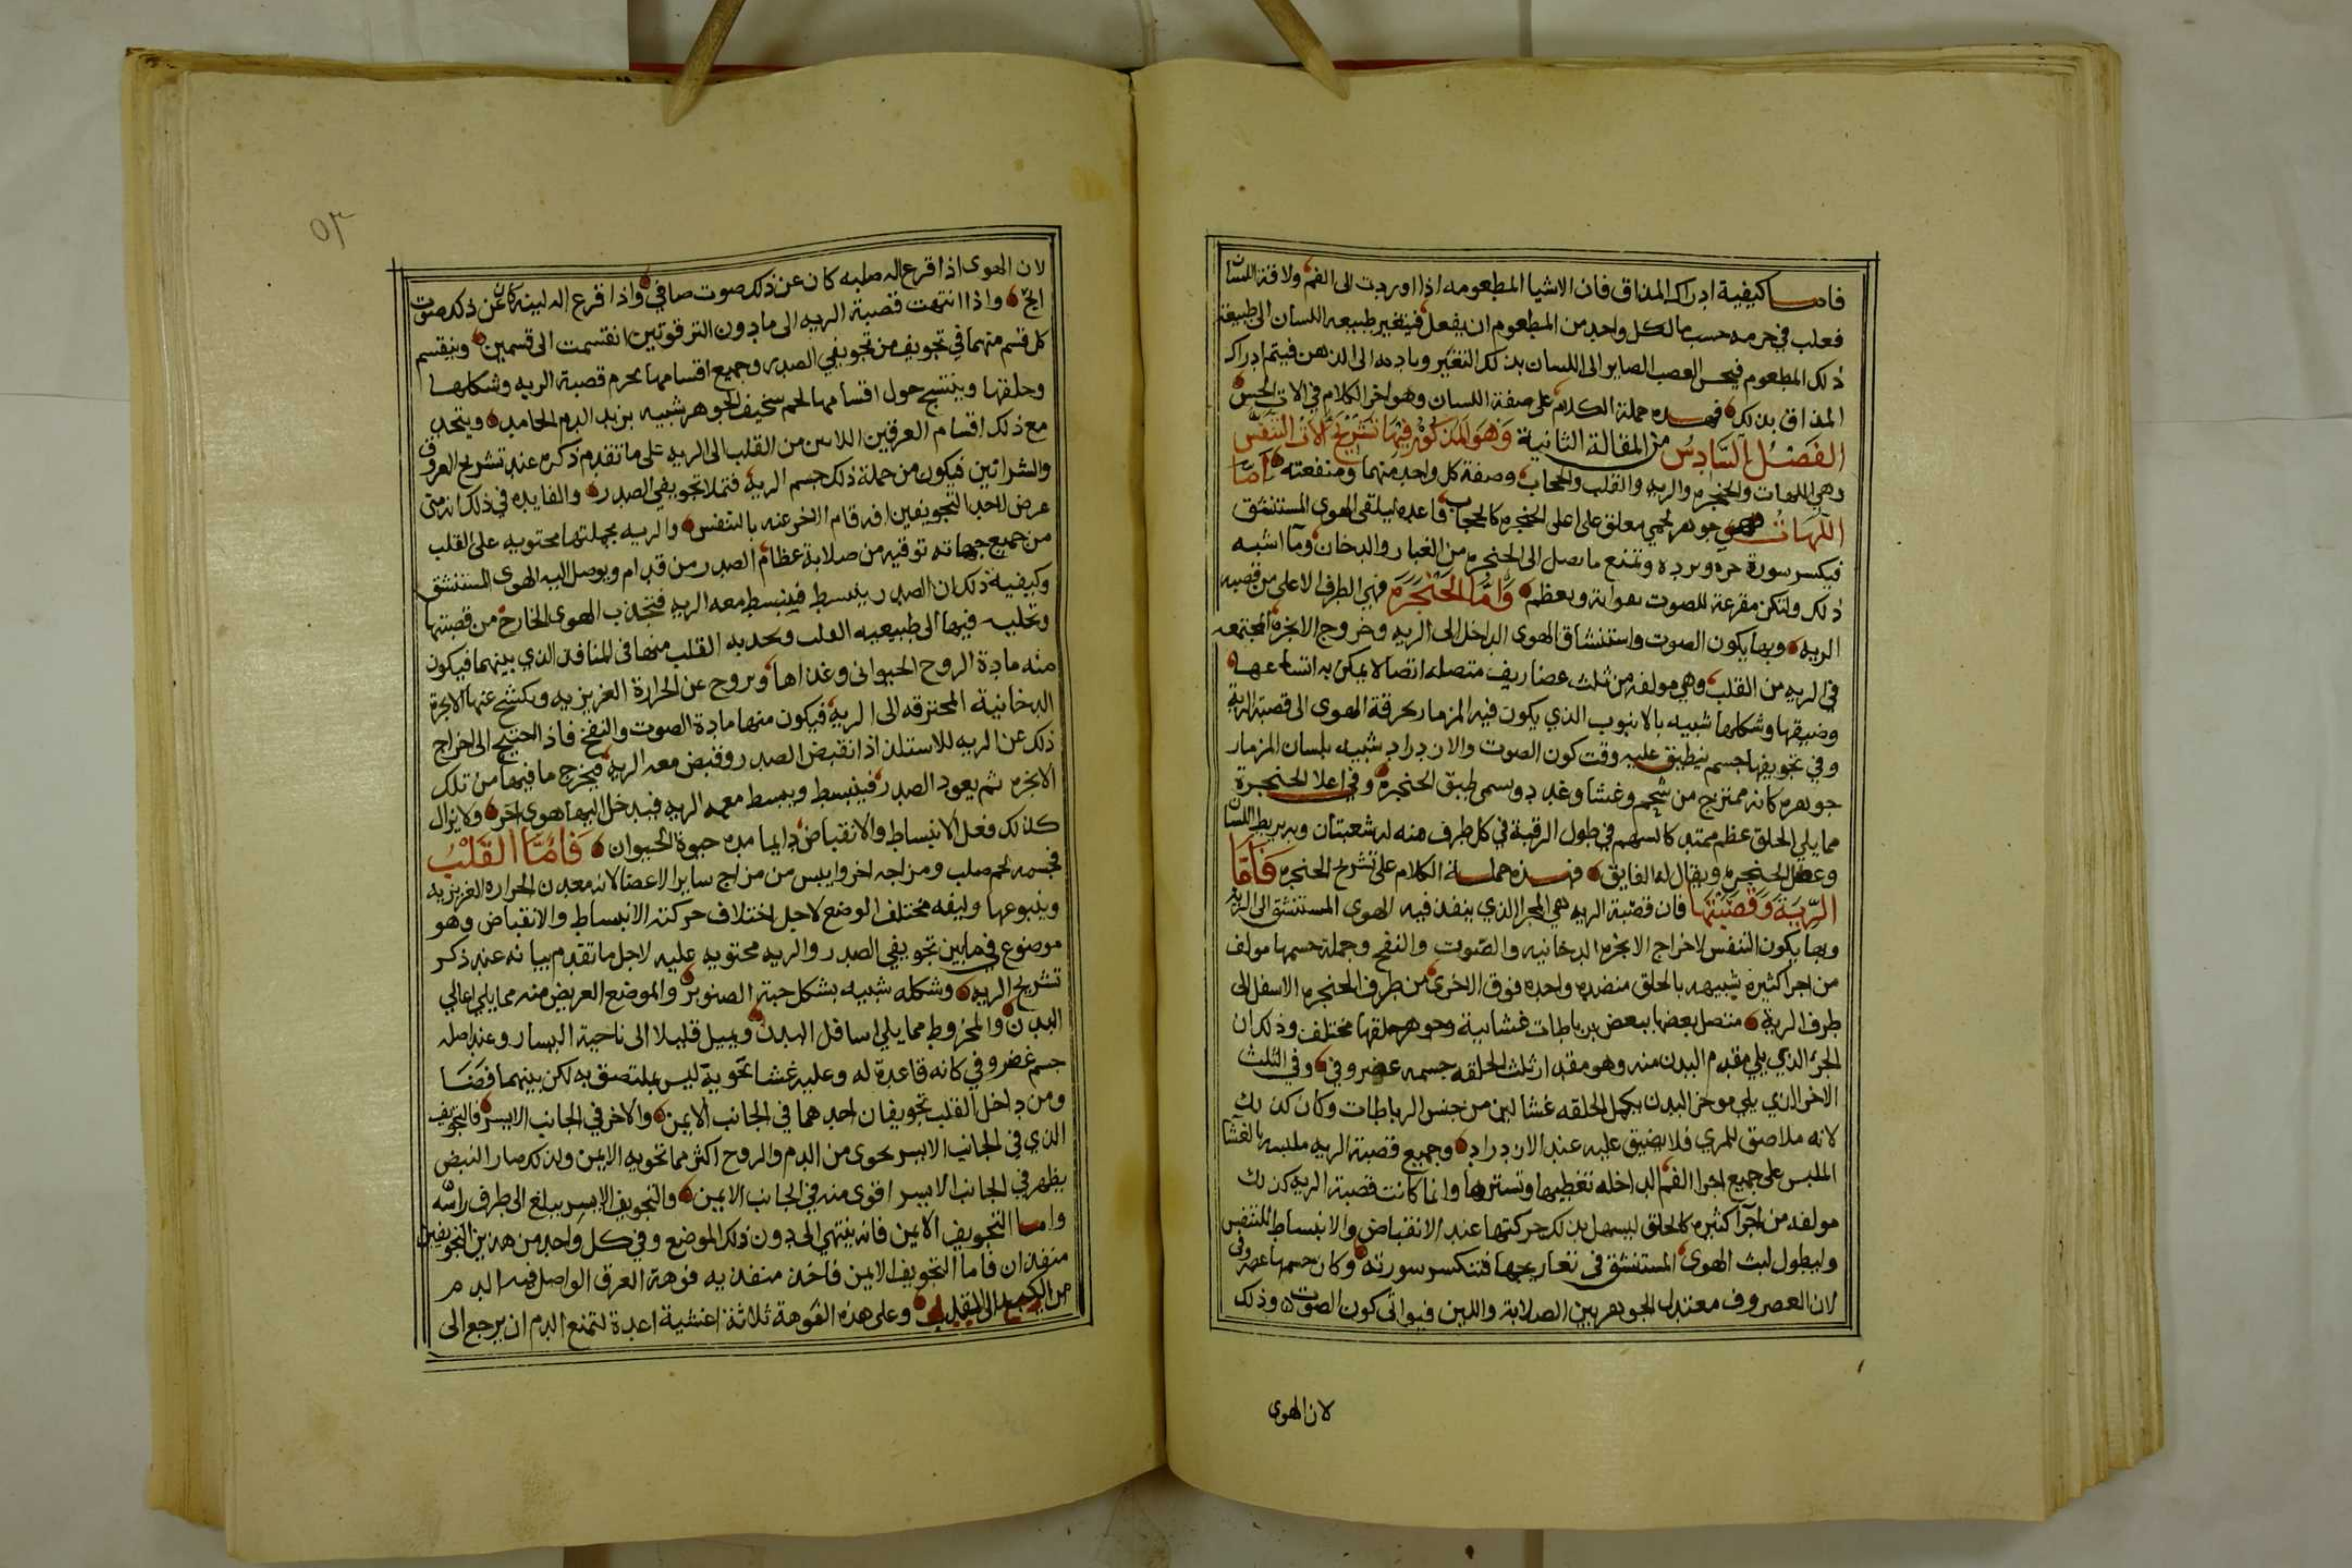 فاما كيفية ادراك المذاق فان الاشيا المطعومه اذا اوردت الى الفم ولاقته اللسان
فعلب في جرمه حسب ما لكل واحد من المطعوم ان يفعل فيتغير طبيعه اللسان الى طبيعة
ذلك المطعوم فيحس العصب الصاير الى اللسان بذلك التغير وياديه الى الذهن فيتم ادراك
المذاق بذلك فهذه جملة الكلام على صفة اللسان وهو اخر الكلام في الات الحس
الفصل السادس من المقالة الثانية وهو المذكور فيها تشريح آلات التنفس
وهي اللهات والحنجره والريه والقلب والحجاب وصفة كل واحد منهما ومنفعته اما
اللهات فهي جوهر لحمي معلق على اعلى الحنجره كالحجاب قاعده ليلتقى الهوى المستنشق
فيكسر سورة حره وبرده وتمنع ما يصل الى الحنجره من الغبار والدخان وما اشبه
ذلك ولتكن مقرعة للصوت بقوايه ويعظم واما الحنجره فهي الطرف الاعلى من قصبة
الريه وبها يكون الصوت واستنشاق الهوى الداخل الى الريه وخروج الابخره المجتمعه
في الريه من القلب وهي مولفه من ثلث عضاريف متصله اتصالا يمكن به اتساعها
وضيقها وشكلها شبيه بالانبوب الذي يكون فيه المزمار بحرقة الهوى الى قصبة الرية
وفي تجويفها جسم ينطبق عليه وقت كون الصوت والازدراد شبيه بلسان المزمار
جوهره كانه ممتزج من شحم وغشا وغدد ويسمى طبق الحنجره وفي اعلا الحنجرة
مما يلي الحلق عظم ممتد كالسهم في طول الرقبة في كل طرف منه له شعبتان وبه يربط اللسان
وعضل الحنجره ويقال له الفايق فهذه جملة الكلام على تشريح الحنجره فاما
الرية وقصبتها فان قصبة الريه هي المجرا الذي ينفذ فيه الهوى المستنشق الى الريه
وبها يكون التنفس لاخراج الابخره الدخانيه والصوت والنفخ وجملة جسمها مولف
من اجرا كثيرة شبيهه بالحلق منضده واحده فوق الاخرى من طرف الحنجره الاسفل الى
طرف الرية متصل بعضها ببعض برباطات غشايية وجوهر حلقها مختلف وذلك ان
الجزء الذي يلي مقدم البدن منه وهو مقدار ثلث الحلقه جسمه غضروفي وفي الثلث
الاخر الذي يلي موخر البدن يكمل الحلقه غشا لين من جنس الرباطات وكان كذلك
لانه ملاصق للمري فلا يضيق عليه عند الازدراد وجميع قصبة الريه ملبسه بالغشا
الملبس على جميع اجرا الفم الداخله تغطيها وتسترها وانما كانت قصبة الريه كذلك
مولفه من اجرا كثيره كالحلق ليسهل بذلك حركتها عند الانقباض والانبساط للتنفس
وليطول لبث الهوى المستنشق في تعاريجها فتنكسر سورته وكان جسمها عضروفي
لان العضروف معتدل الجوهر بين الصلابة واللين فيواتي كون الصوت وذلك
لان الهوى
٥٣
لان الهوى اذا قرع اله صلبه كان عن ذلك صوت صافي واذا قرع اله لينه كان عن ذلك صوت
ابح واذا انتهت قصبة الريه الى ما دون الترقوتين انقسمت الى قسمين وينقسم
كل قسم منهما في تجويف من تجويفي الصدر وجميع اقسامها بجرم قصبة الريه وشكلها
وحلقتها وينتسج حول اقسامها لحم سخيف الجوهر شبيه بزبد الدم الجامد ويتحد
مع ذلك اقسام العرقين اللاتين من القلب الى الريه على ما تقدم ذكره عند تشريح العروق
والشراتين فيكون من جملة ذلك جسم الريه فتملا تجويفي الصدر والفايده في ذلك انه متى
عرض لاحد التجويفين افه قام الاخر عنه بالتنفس والريه بجملتها محتويه على القلب
من جميع جهاته توقيه من صلابة عظام الصدر من قدام ويوصل اليه الهوى المستنشق
وكيفية ذلك ان الصدر ينبسط فينبسط معه الريه فتجذب الهوى الخارج من قصبتها
وتحليه فيها الى طبيعيه القلب ويجذبه القلب منها في المنافذ الذي بينهما فيكون
منه مادة الروح الحيوانى وغذاها ويروح عن الحرارة الغريزيه ويكشح عنها الابخرة
الدخانية المحترقه الى الريه فيكون منها مادة الصوت والنفخ فاذا احتيج الى اخراج
ذلك عن الريه للاستلذاذ انقبض الصدر وقبض معه الريه فيخرج ما فيها من تلك
الابخره ثم يعود الصدر فينبسط ويبسط معه الريه فيدخل اليها هوى اخر ولا يزال
كذلك فعل الانبساط والانقباض دايما مده حيوة الحيوان فاما القلب
فجسمه لحم صلب ومزاجه احر وايبس من مزاج ساير الاعضا لانه معدن الحراره الغريزيه
وينبوعها وليفه مختلف الوضع لاجل اختلاف حركته الانبساط والانقباض وهو
موضوع في ما بين تجويفي الصدر والريه محتويه عليه لاجل ما تقدم بيانه عند ذكر
تشريح الريه وشكله شبيه بشكل حبة الصنوبر والموضع العريض منه مما يلي اعالي
البدن والمخروط مما يلي اسافل البدن ويميل قليلا الى ناحية اليسار وعند اصله
جسم غضروفي كانه قاعدة له وعليه غشا تحويه ليس بملتصق به لكن بينهما فضا
ومن داخل القلب تجويفان احدهما في الجانب الايمن والاخر في الجانب الايسر فالتجويف
الذي في الجانب الايسر يحوى من الدم والروح اكثر مما تحويه الايمن ولذلك صار النبض
يظهر في الجانب الايسر اقوى منه في الجانب الايمن والتجويف الايسر يبلغ الى طرف راسه
واما التجويف الايمن فانه ينتهي الى دون ذلك الموضع وفي كل واحد من هذين التجويفين
منفذان فاما التجويف الايمن فاحد منفذيه فوهة العرق الواصل فيه الدم
من الكبد الى القلب وعلى هذه الفوهة ثلاثة اغشية اعدة لتمنع الدم ان يرجع الى